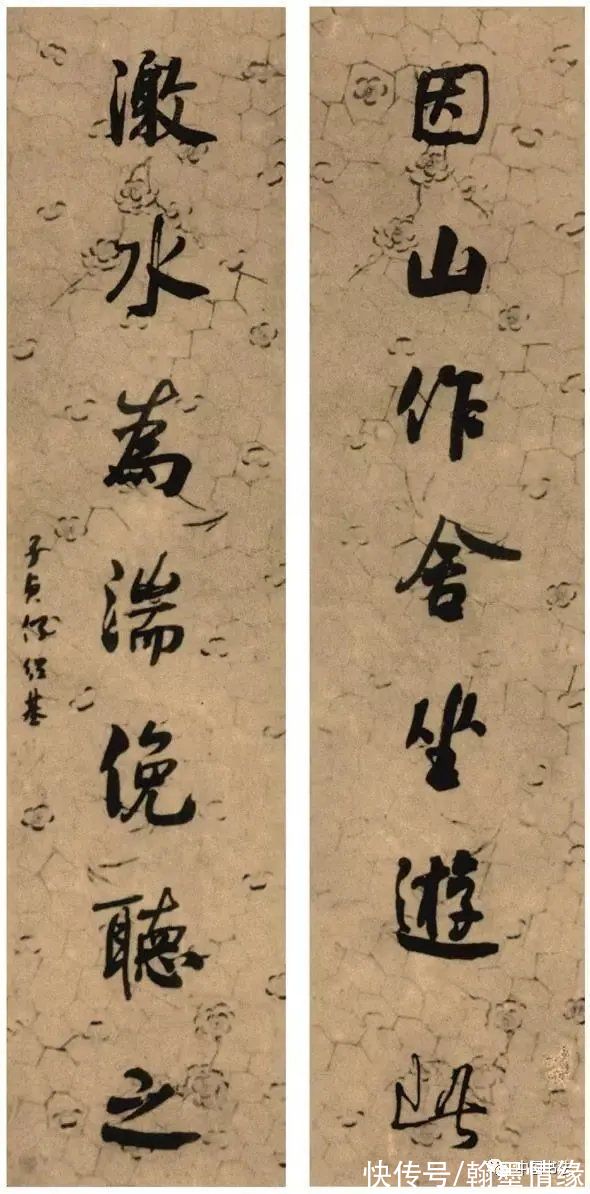 因山作舍坐遊此
激水為湍俛聽之
子貞何紹基
中国书法
快传号/翰墨情缘